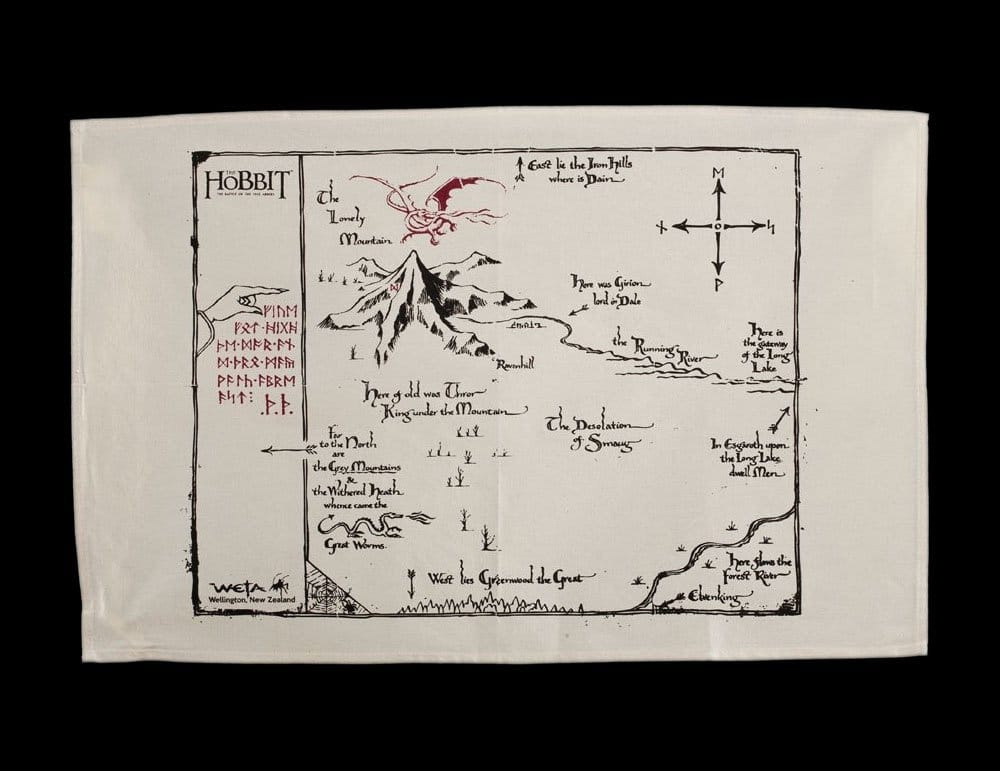 THE
HOBBIT
THE BATTLE OF THE FIVE ARMIES
The
Lonely
Mountain
East lie the Iron Hills
where is Dain
ᛖ
ᚾ ᛋ
ᚹ
ᚠᛁᚢᛖ
ᚠᚩᛏ·ᚻᛁᚷᚻ
ᚦᛖ·ᛞᚩᚱ·ᚪᚾ
ᛞ·ᚦᚱᛖ·ᛗᚪᚣ
ᚹᚪᛚᚳ·ᚪᛒᚱᛖ
ᚪᛋᛏ:
ᚦ·ᚦ·
Here was Girion
lord in Dale
the Running River
Here is
the gateway
of the Long
Lake
Ravenhill
Here of old was Thror
King under the Mountain
The Desolation
of Smaug
Far
to the North
are
the Grey Mountains
&
the Withered Heath
whence came the
Great Worms.
In Esgaroth upon
the Long Lake
dwell Men
Here flows the
Forest River
Elvenking
West lies Greenwood the Great
WETA
Wellington, New Zealand